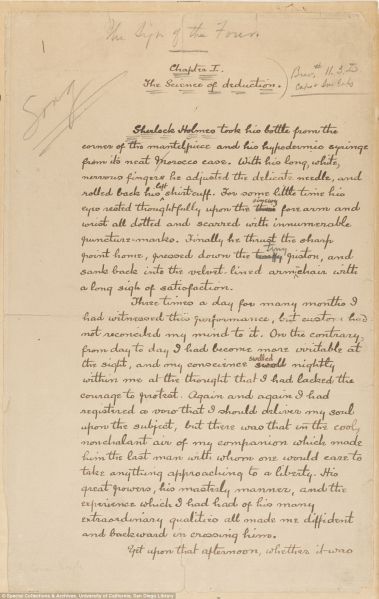 The Sign of the Four.
Chapter I.
The Science of deduction.
Sherlock Holmes took his bottle from the
corner of the mantelpiece and his hypodermic syringe
from its neat Morocco case. With his long, white,
nervous fingers he adjusted the delicate needle, and
rolled back his left shirtcuff. For some little time his
eyes rested thoughtfully upon the sinewy forearm and
wrist all dotted and scarred with innumerable
puncture-marks. Finally he thrust the sharp
point home, pressed down the tiny piston, and
sank back into the velvet lined armchair with
a long sigh of satisfaction.
Three times a day for many months I
had witnessed this performance, but custom had
not reconciled my mind to it. On the contrary,
from day to day I had become more irritable at
the sight, and my conscience swelled nightly
within me at the thought that I had lacked the
courage to protest. Again and again I had
registered a vow that I should deliver my soul
upon the subject, but there was that in the cool,
nonchalant air of my companion which made
him the last man with whom one would care to
take anything approaching to a liberty. His
great powers, his masterly manner, and the
experience which I had had of his many
extraordinary qualities all made me diffident
and backward in crossing him.
Yet upon that afternoon, whether it was
© Special Collections & Archives, University of California, San Diego Library